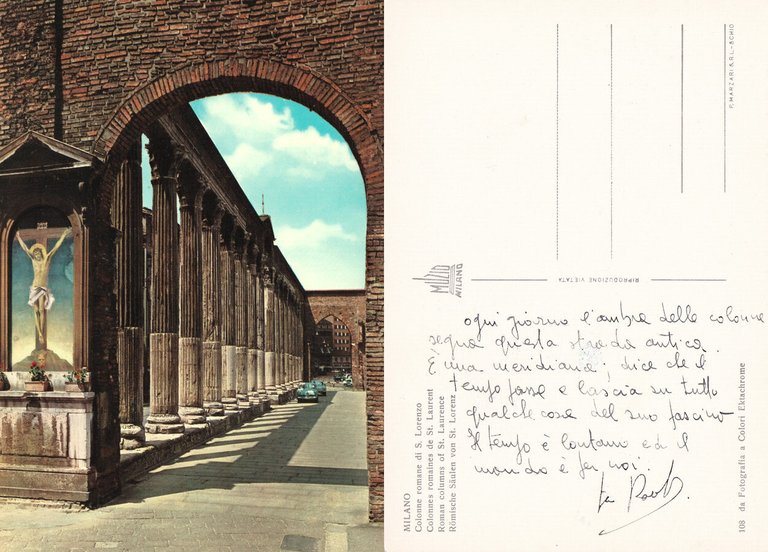 MILANO
Colonne romane di S. Lorenzo
Colonnes romaines de St. Laurent
Roman columns of St. Laurence
Römische Säulen von St. Lorenz
MUZIO
MILANO
RIPRODUZIONE VIETATA
P. MARZARI S.R.L. - SCHIO
ogni giorno l'ombra delle colonne
segna questa strada antica.
È una meridiana; dice che il
tempo passa e lascia su tutto
qualche cosa del suo fascino
Il tempo è lontano ed il
mondo è per noi.
108 da Fotografia a Colori Ektachrome